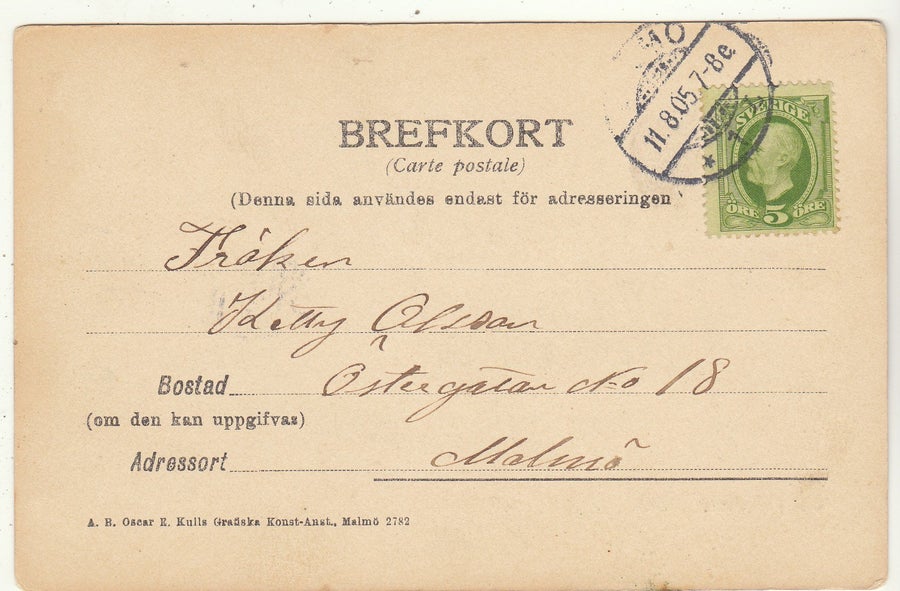 MÖ
11.8.05.7-8e
* 1
SVERIGE
ÖRE 5 ÖRE
BREFKORT
(Carte postale)
(Denna sida användes endast för adresseringen
Fröken
Ketty Olsson
Bostad Östergatan No 18
(om den kan uppgifvas)
Adressort Malmö
A. B. Oscar E. Kulls Grafiska Konst-Anst., Malmö 2782